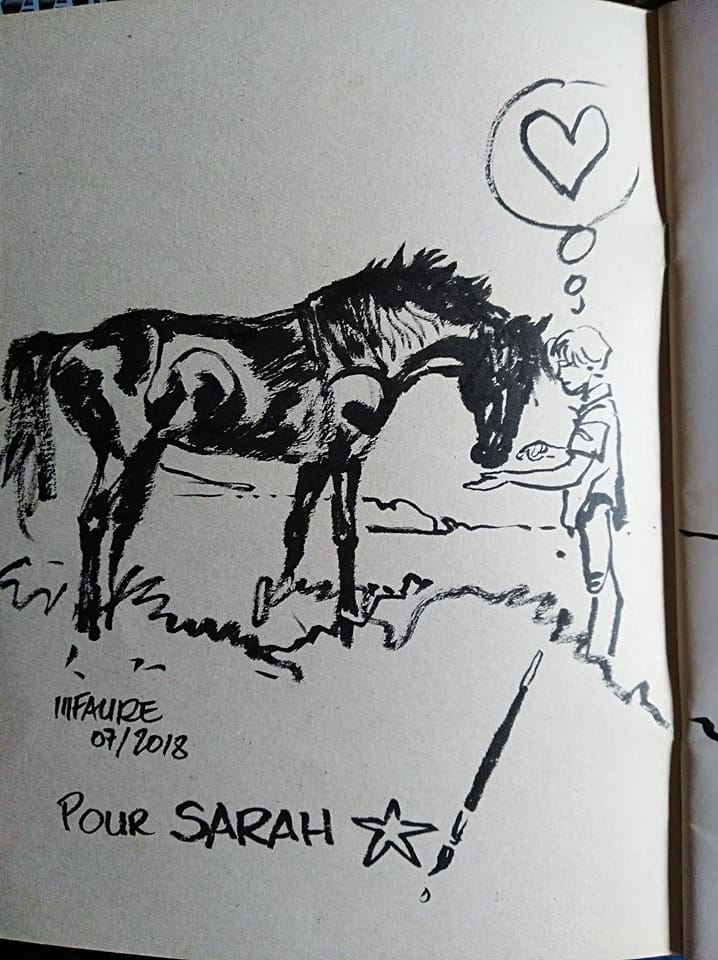 MFAURE
07/2018
POUR SARAH